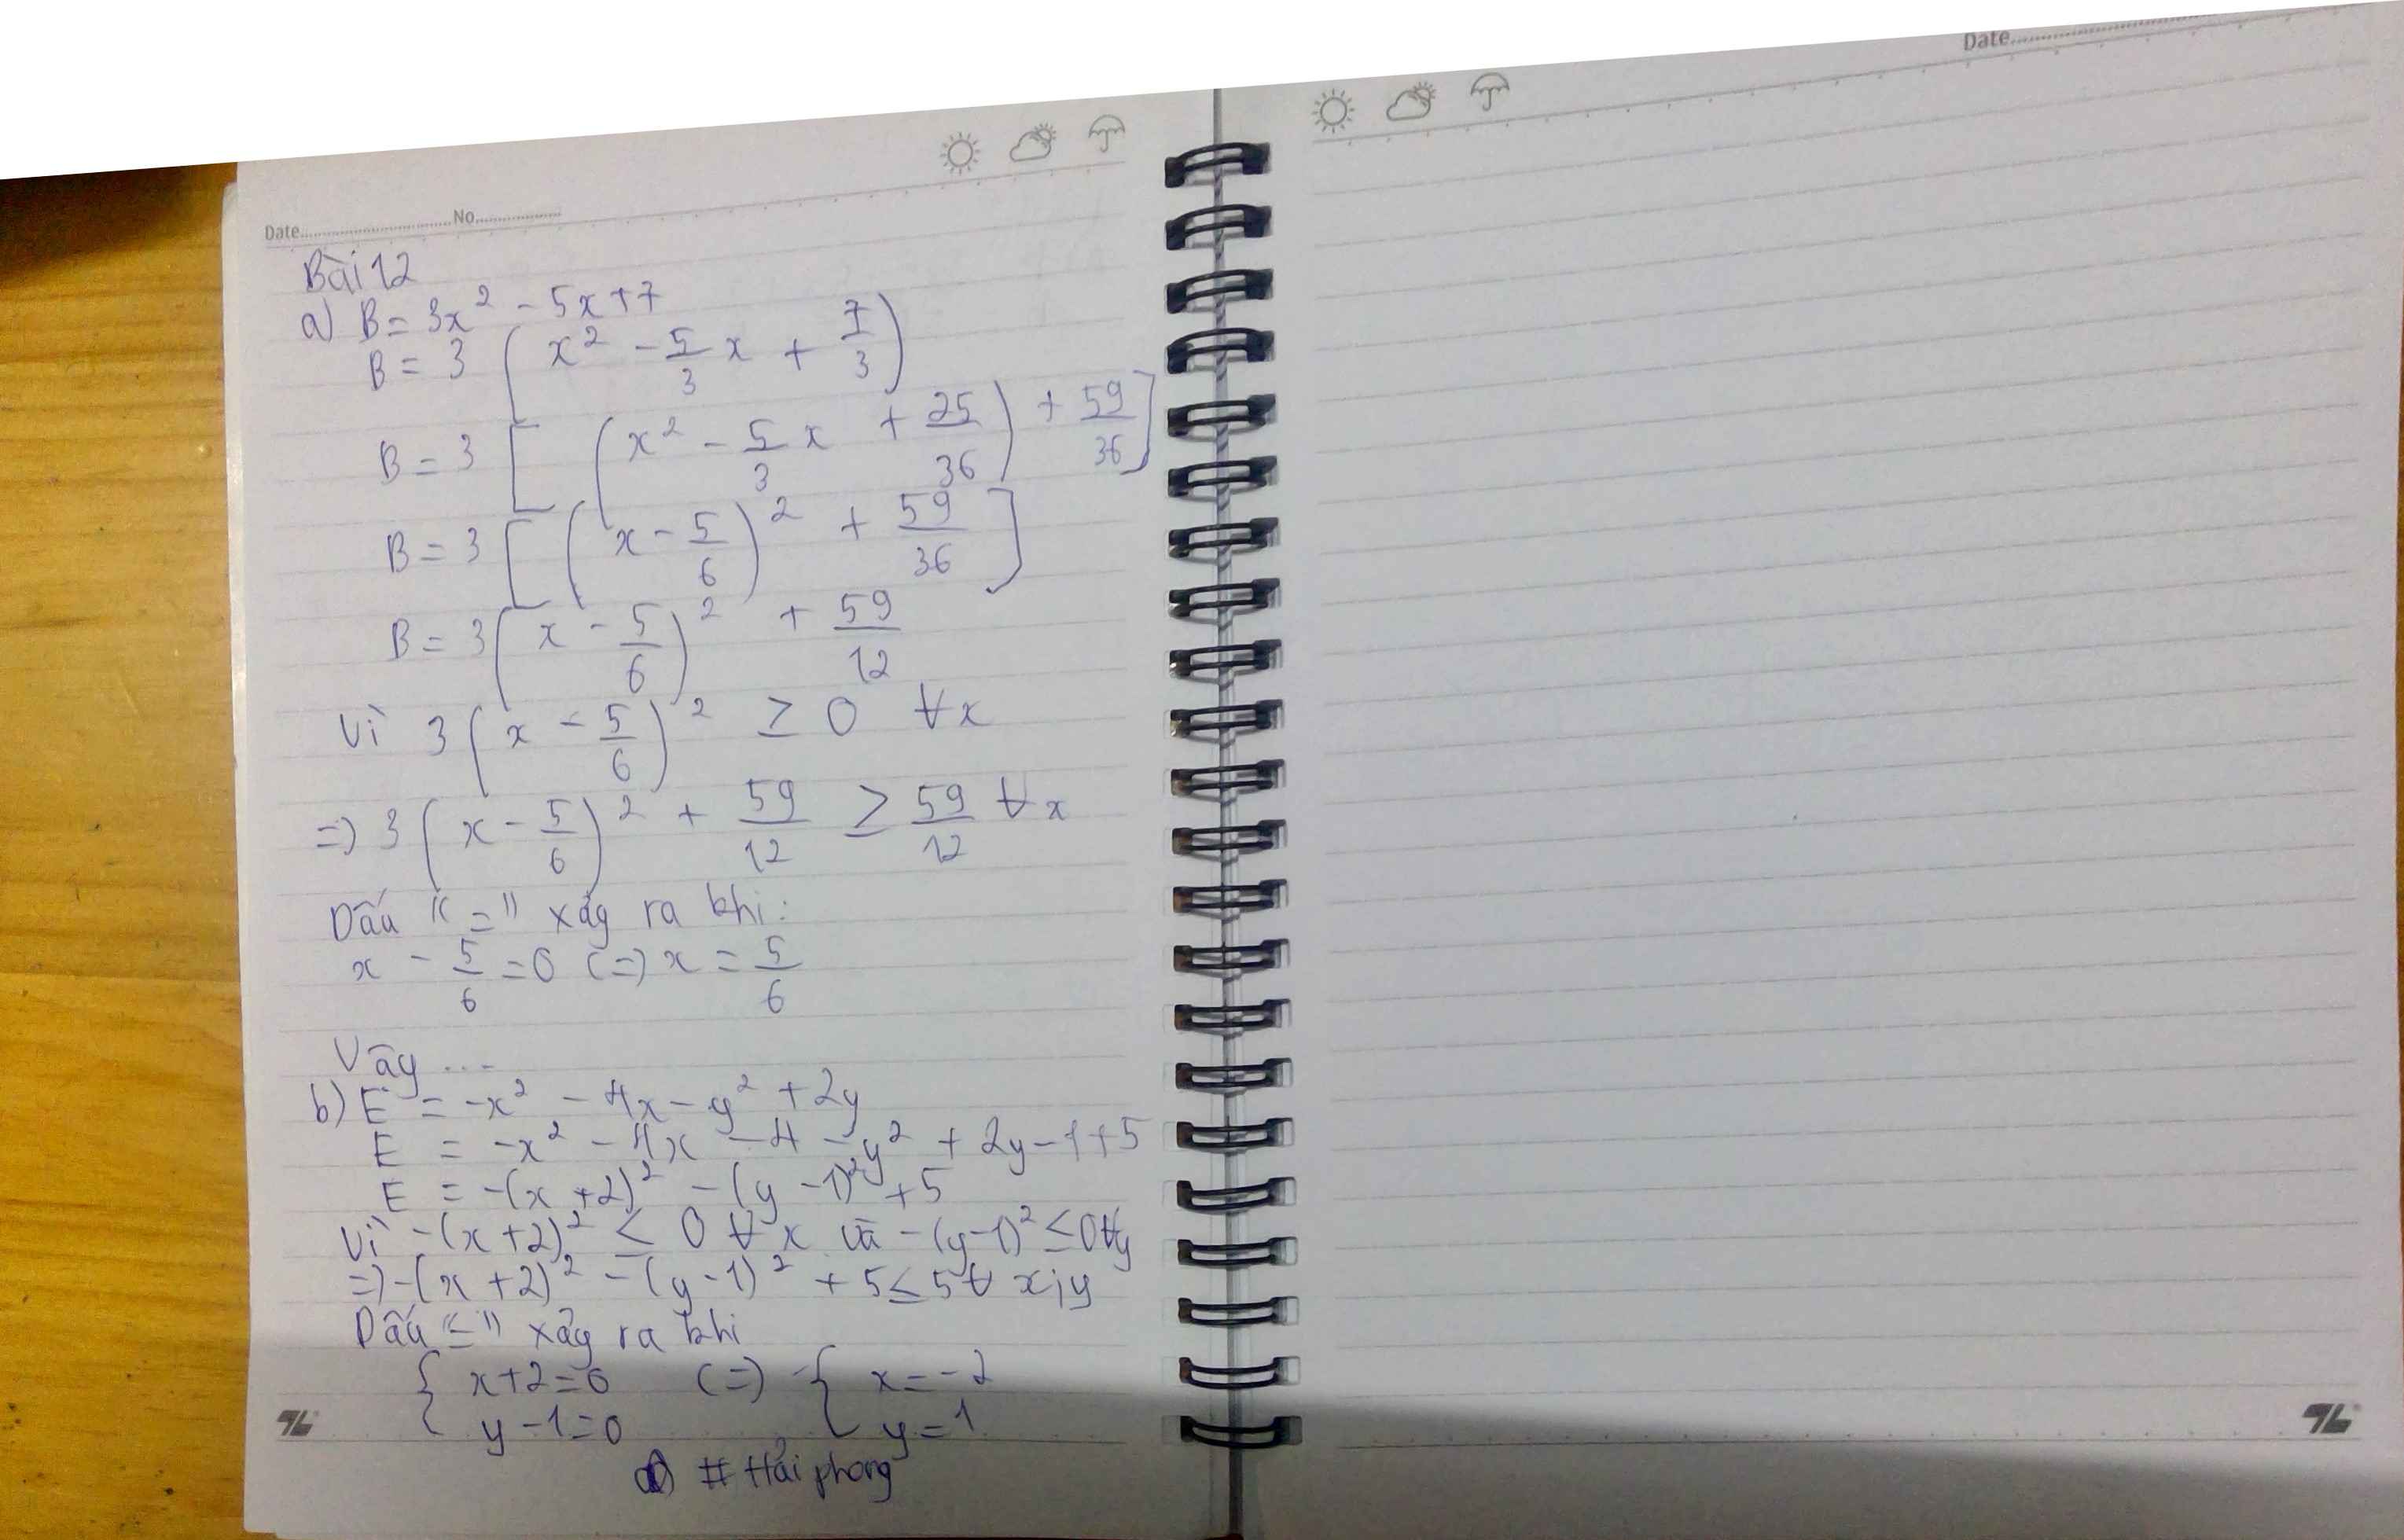 Date............No............
Bài 12
a) B = 3x² - 5x + 7
B = 3 (x² - 5/3 x + 7/3)
B = 3 [(x² - 5/3 x + 25/36) + 59/36]
B = 3 [(x - 5/6)² + 59/36]
B = 3 (x - 5/6)² + 59/12
Vì 3 (x - 5/6)² ≥ 0 ∀x
=) 3 (x - 5/6)² + 59/12 ≥ 59/12 ∀x
Dấu "=" xảy ra khi:
x - 5/6 = 0 (=) x = 5/6
Vậy ...
b) E = -x² - 4x - y² + 2y
E = -x² - 4x - 4 - y² + 2y - 1 + 5
E = -(x + 2)² - (y - 1)² + 5
Vì -(x + 2)² ≤ 0 ∀x và -(y - 1)² ≤ 0 ∀y
=) -(x + 2)² - (y - 1)² + 5 ≤ 5 ∀ x;y
Dấu "=" xảy ra khi
{ x + 2 = 0 (=) { x = -2
y - 1 = 0 y = 1
# Hải phong
Date............